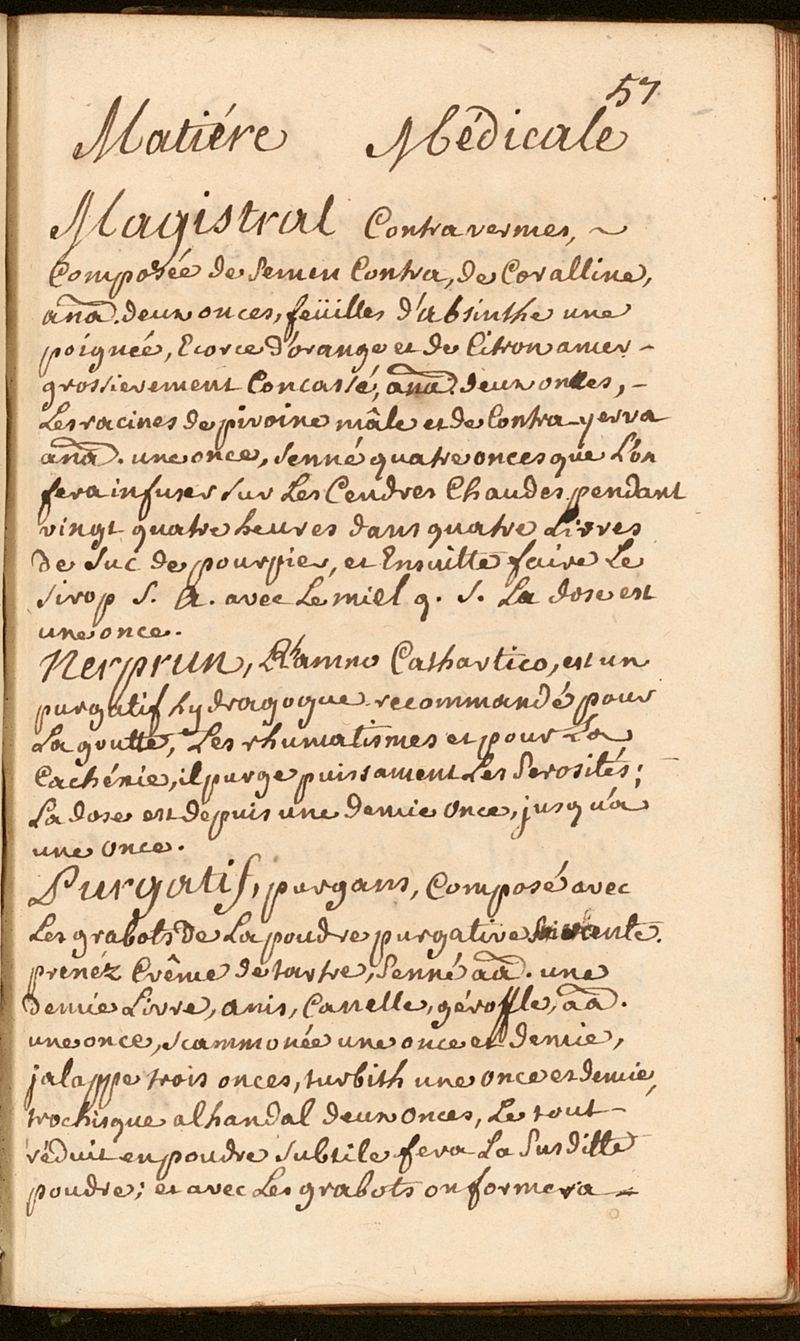 57
Matiére Médicale
Magistral Contra vermes, ~
Composée de Semen Contra, de Coralline,
anã. deux onces, feüilles d'absinthe une
poignée, Ecorce d'orange et de Citron amer -
grossierement Concassé, anã. deux onces, -
Les racines de pivoine mâle et de Contra-yerva
anã. une once, Senné quatre onces que L'on
fera infuser Sur Les Cendres Chaudes pendant
vingt quatre heures dans quatre Livres
de Suc de pourpier, et Ensuitte faire Le
Sirop S. A. avec Le miel q. S. La dose est
une once.
Nerprun, Rhamno Cathartico, est un
purgatif hydragogue recommandé pour
La goutte, Les rhumatismes et pour La
Cachéxie, il purge puissament Les Serosités;
La dose est depuis une demie once, jusqu'a
une once.
Purgatif, purgans, Composé avec
Les grabots de La poudre purgative Suivante.
prenéz Crême de tartre, Senné aã. une
demie Livre, anis, Canelle, géroffle, aã.
une once, scammonée une once et demie,
jalappe trois onces, turbith une once et demie,
trochisque alhandal deux onces, Le tout -
réduit en poudre subtile fera La Susditte
poudre; et avec Les grabots on formera -